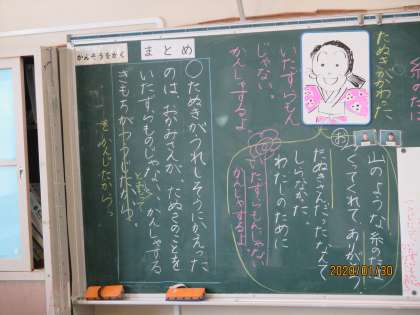 糸の
たぬきがかわった
いたずらもん
じゃない。
かんしゃするよ
お
山のような糸のたば
つくってくれて、ありがとう。
たぬきさんだったなんて
しらなかった。
わたしのために
いたずらもんじゃない
かんしゃするよ
まとめ
かんそうをかく
○たぬきがうれしそうにかえった
のは、おかみさんが、たぬきのことを
いたずらものじゃない、かんしゃする
とゆって
きもちが
をかんじたから。
2020/01/30